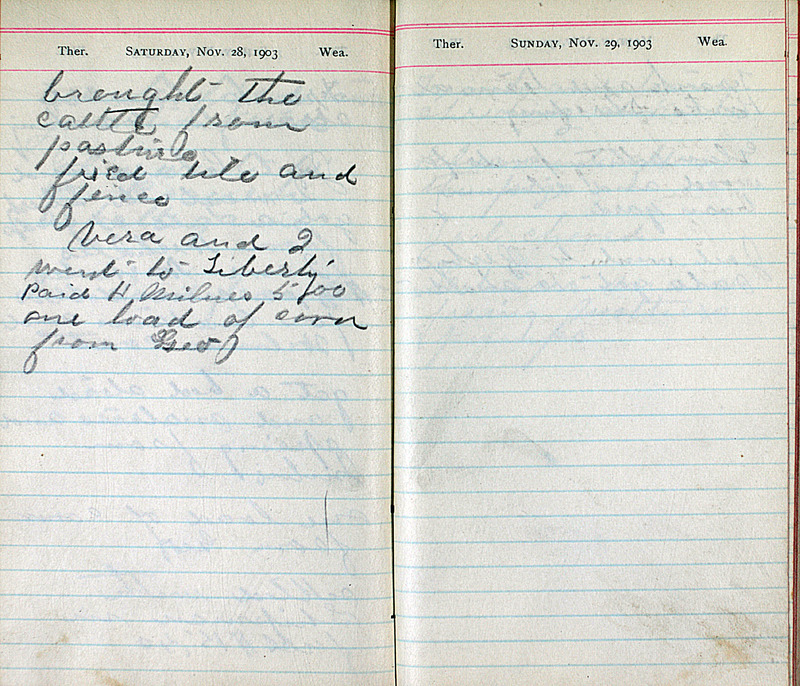 Ther. SATURDAY, NOV. 28, 1903 Wea.
brought the
cattle from
pasture
fried tile and
fence
Vera and I
went to Liberty
paid H Milnes 5 00
one load of corn
from Geo
Ther. SUNDAY, NOV. 29, 1903 Wea.